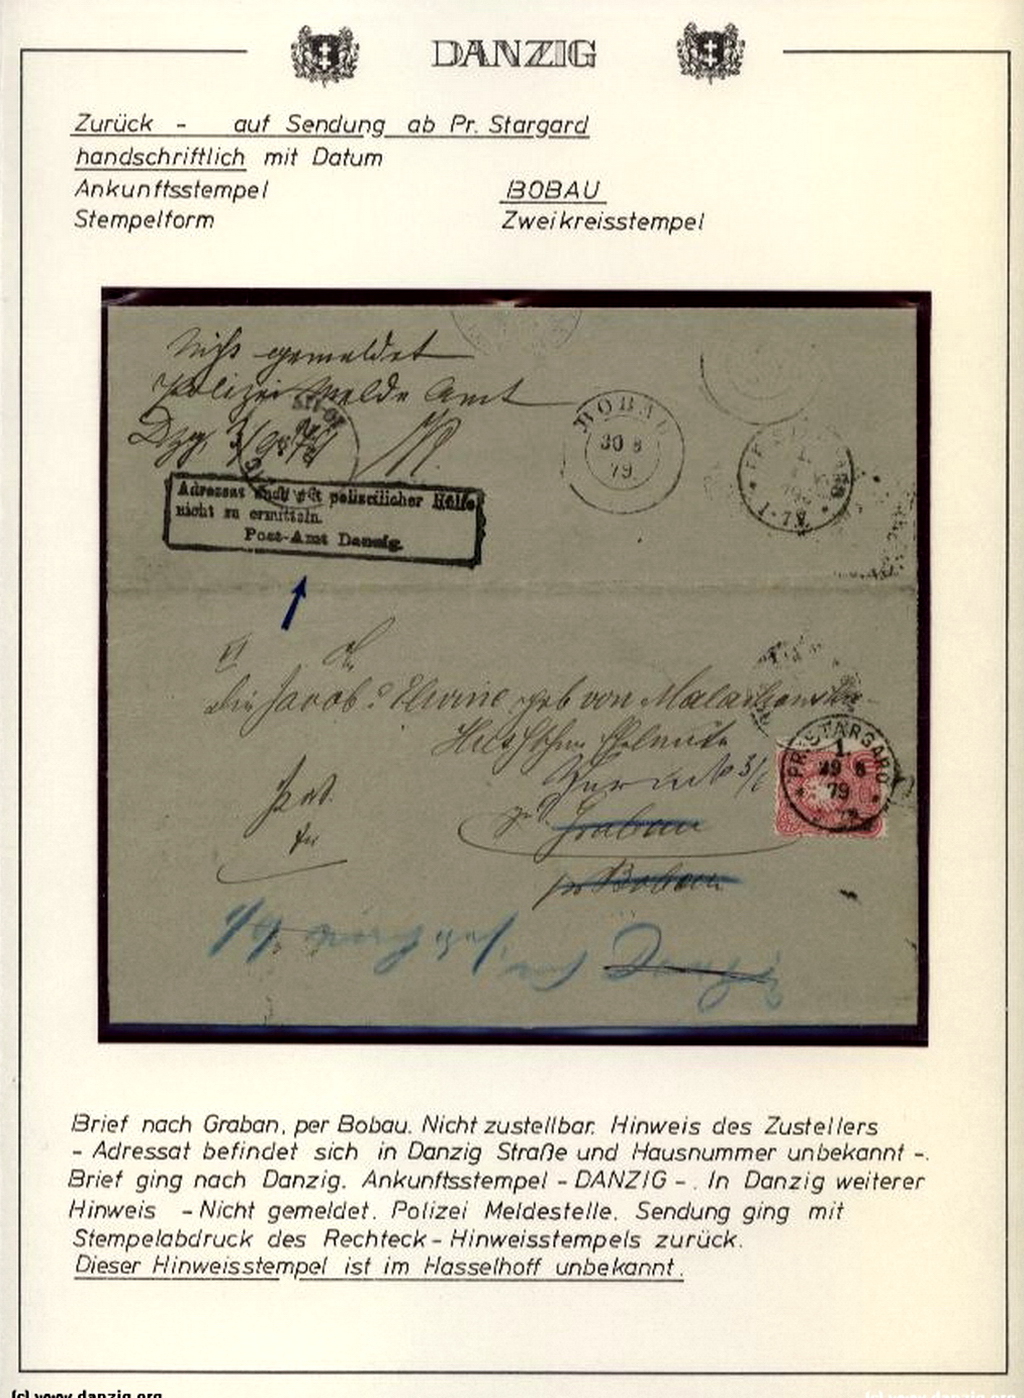 DANZIG
Zurück - auf Sendung ab Pr. Stargard
handschriftlich mit Datum
Ankunftsstempel BOBAU
Stempelform Zweikreisstempel
Nicht gemeldet
Polizei Melde Amt
Dzg. 3/9 79
BOBAU
30 8
79
Adressat auch mit polizeilicher Hülfe
nicht zu ermitteln.
Post-Amt Danzig.
geb von
Zurück 3/
Grabau
pr Bobau
PR. STARGARD
1.
29 8
79
1/9
Danzig
Brief nach Graban, per Bobau. Nicht zustellbar. Hinweis des Zustellers
- Adressat befindet sich in Danzig Straße und Hausnummer unbekannt -.
Brief ging nach Danzig. Ankunftsstempel - DANZIG -. In Danzig weiterer
Hinweis - Nicht gemeldet. Polizei Meldestelle. Sendung ging mit
Stempelabdruck des Rechteck - Hinweisstempels zurück.
Dieser Hinweisstempel ist im Hasselhoff unbekannt.
(c) www.danzig.org
(c) www.danzig.org